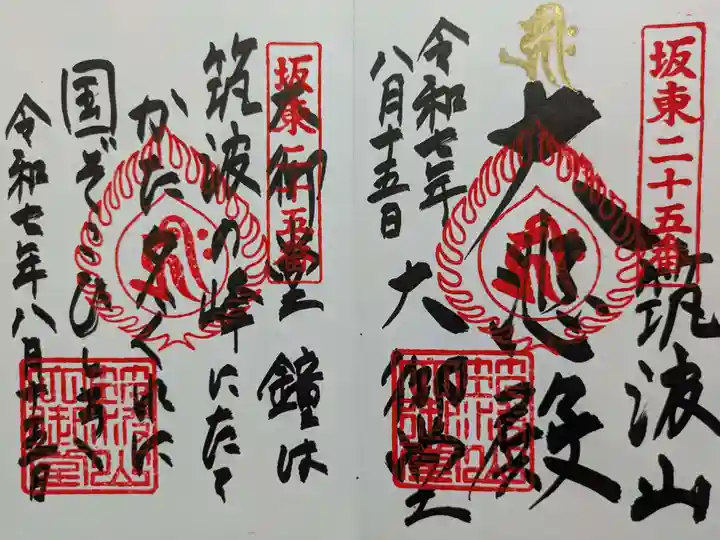 坂東二十五番
筑波山
大悲殿
大御堂
令和七年
八月十五日
坂東二十五番
大御堂 鐘は
筑波の峰にたて
かた夕くれに
国ぞこひしき
令和七年八月十五日